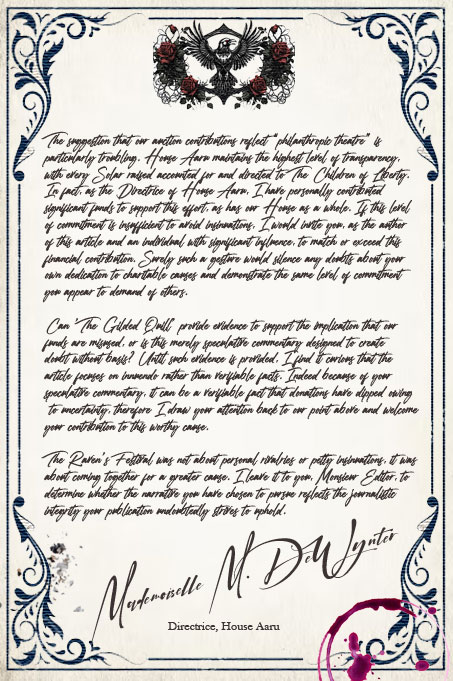 The suggestion that our auction contributions reflect "philanthropic theatre" is
particularly troubling. House Aaru maintains the highest level of transparency,
with every Solar raised accounted for and directed to The Children of Liberty.
In fact, as the Directrice of House Aaru, I have personally contributed
significant funds to support this effort, as has our House as a whole. If this level
of commitment is insufficient to avoid insinuations, I would invite you, as the author
of this article and an individual with significant influence, to match or exceed this
financial contribution. Surely such a gesture would silence any doubts about your
own dedication to charitable causes and demonstrate the same level of commitment
you appear to demand of others.
Can 'The Gilded Quill' provide evidence to support the implication that our
funds are misused, or is this merely speculative commentary designed to create
doubt without basis? Until such evidence is provided, I find it curious that the
article focuses on innuendo rather than verifiable facts. Indeed because of your
speculative commentary, it can be a verifiable fact that donations have dipped owing
to uncertainty, therefore I draw your attention back to our point above and welcome
your contribution to this worthy cause.
The Raven's Festival was not about personal rivalries or petty insinuations, it was
about coming together for a greater cause. I leave it to you, Monsieur Editor, to
determine whether the narrative you have chosen to pursue reflects the journalistic
integrity your publication undoubtedly strives to uphold.
Mademoiselle M. DeWynter
Directrice, House Aaru